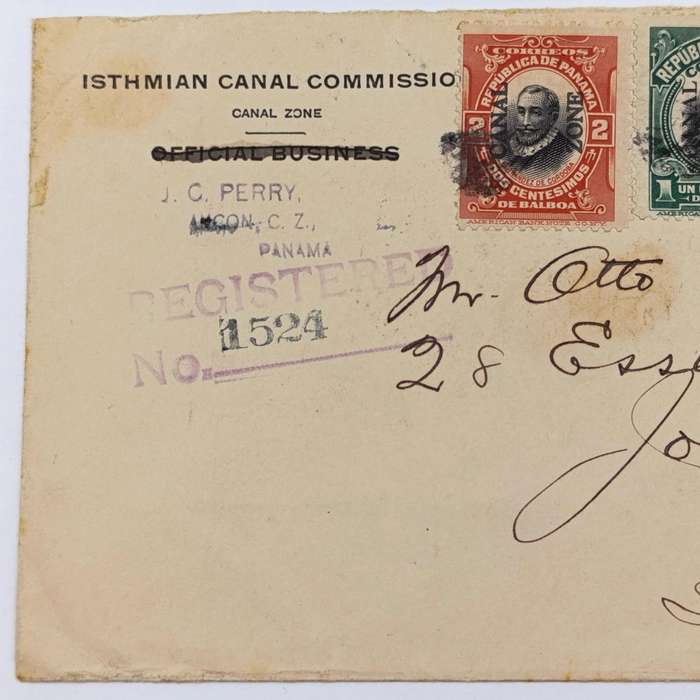 ISTHMIAN CANAL COMMISSIO
CANAL ZONE
OFFICIAL BUSINESS
J. C. PERRY,
ANCON, C. Z.,
PANAMA
REGISTERED
No. 1524
CORREOS
REPUBLICA DE PANAMA
CANAL ZONE
2 2
DOS CENTESIMOS
DE BALBOA
AMERICAN BANK NOTE CO. N.Y.
REPUB
CANAL
1 UN
Mr. Otto
28 Ess
Jo